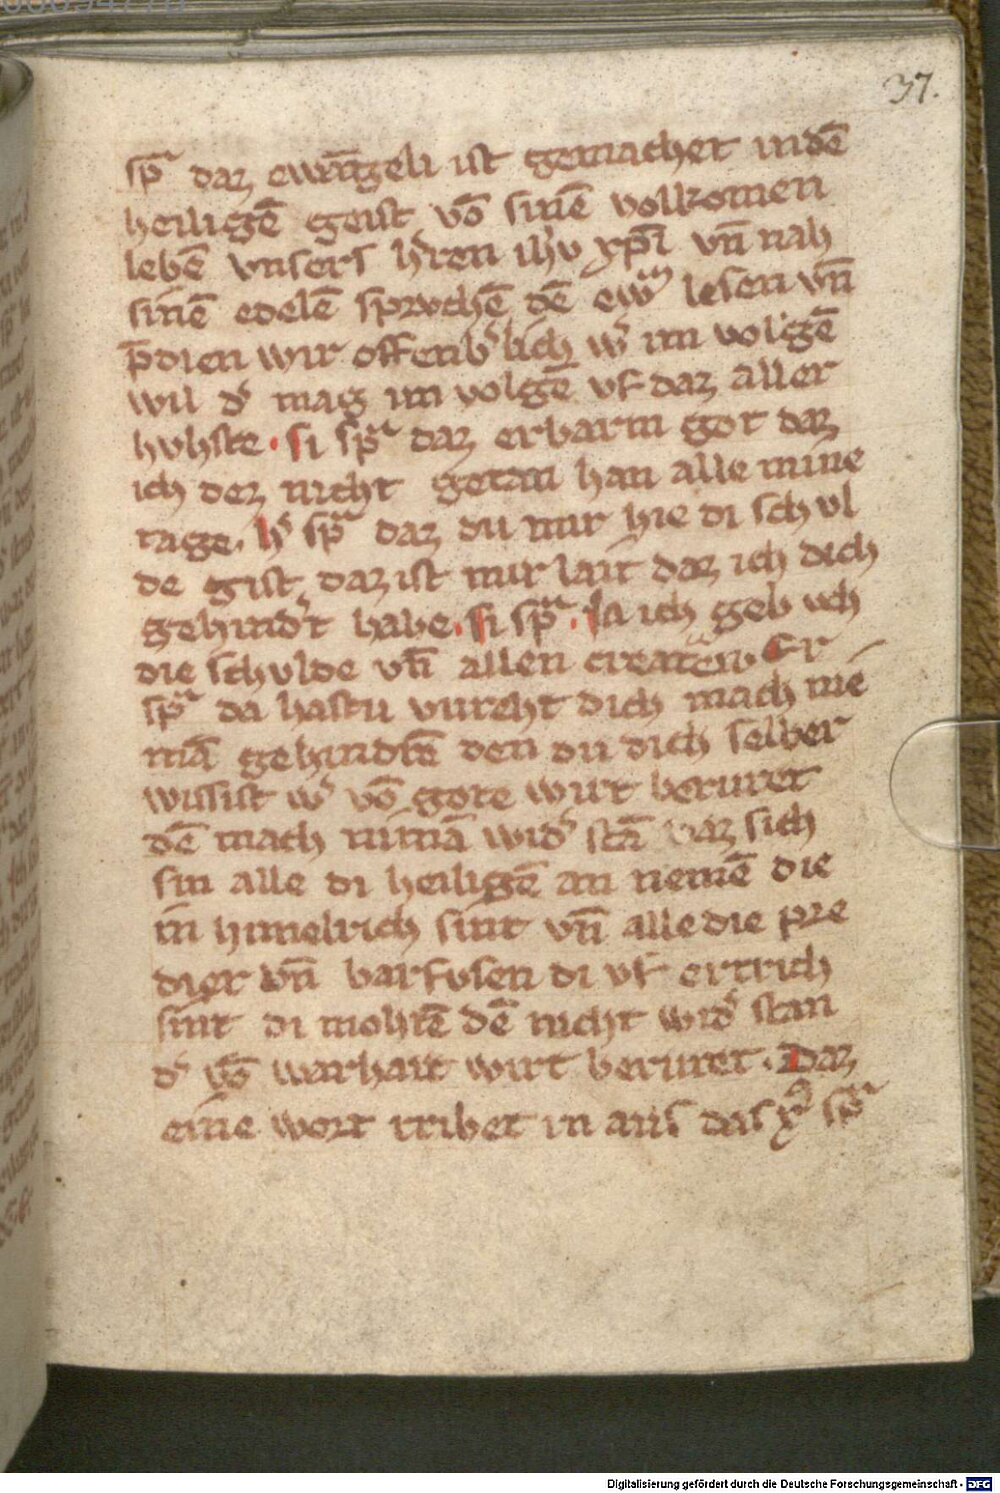 37.
spᵃ daz ewāngeli ist gemachet in dē
heiligē geist vō sinē vollkomen
lebē vnsers h̓ren ih̓u xp̄i vn̄ nah
sinē edelē sprvchē dē ewᵐ lesen vn̄
p̄dien wir offenb̓lich w̓ im volgē
wil d̓ mag im volgē vf daz aller
hvhste . si spᵃ daz erbarm got daz
ich dez nicht getan han alle mine
tage. h̓ spᵃ daz du mir hie di schvl
de gist, daz ist mir lait daz ich dich
gehind̓t habe . si spᵃ . Ja ich geb vch
die schvlde vn̄ allen creatᵉn. Er
spᵃ da hastu vnreht dich mach nie
mā gehind̓n den du dich selber
wissist w̓ vō gote wirt beruret
dē mach nimā wid̓ stā daz sich
sin alle di heiligē an nemē die
in himelrich sint vn̄ alle die pre
dier vn̄ barfvsen di vf ertrich
sint di mohtē dē nicht wid̓ stan
d̓ vō warhait wirt beruret . Daz
eine wort tribet in aus das x̓ spᵃ
Digitalisierung gefördert durch die Deutsche Forschungsgemeinschaft - DFG